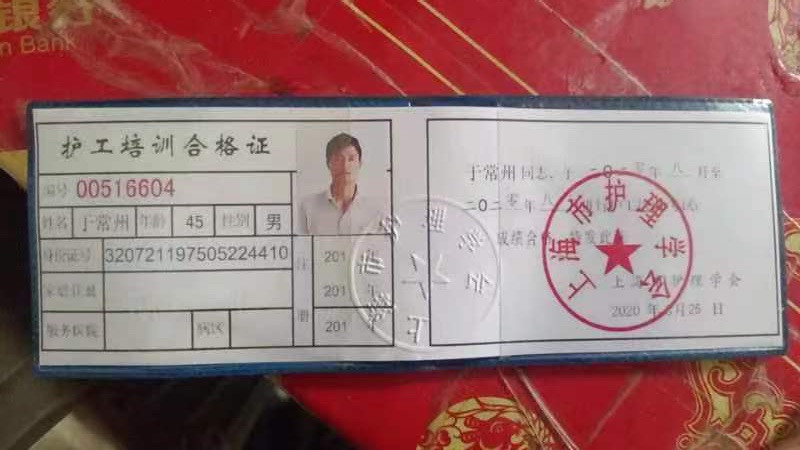 银行
n Bank
护工培训合格证
编号 00516604
姓名 于常州 年龄 45 性别 男
身份证号 320721197505224410
家庭住址
服务医院 病区
注册
201
201 年
201
于常州同志,于二〇二零年八月至
二〇二零年八
成绩合格,特发此证
上海市护理学会
2020 年 月 25 日
上海市护理学会
上海市护理学会